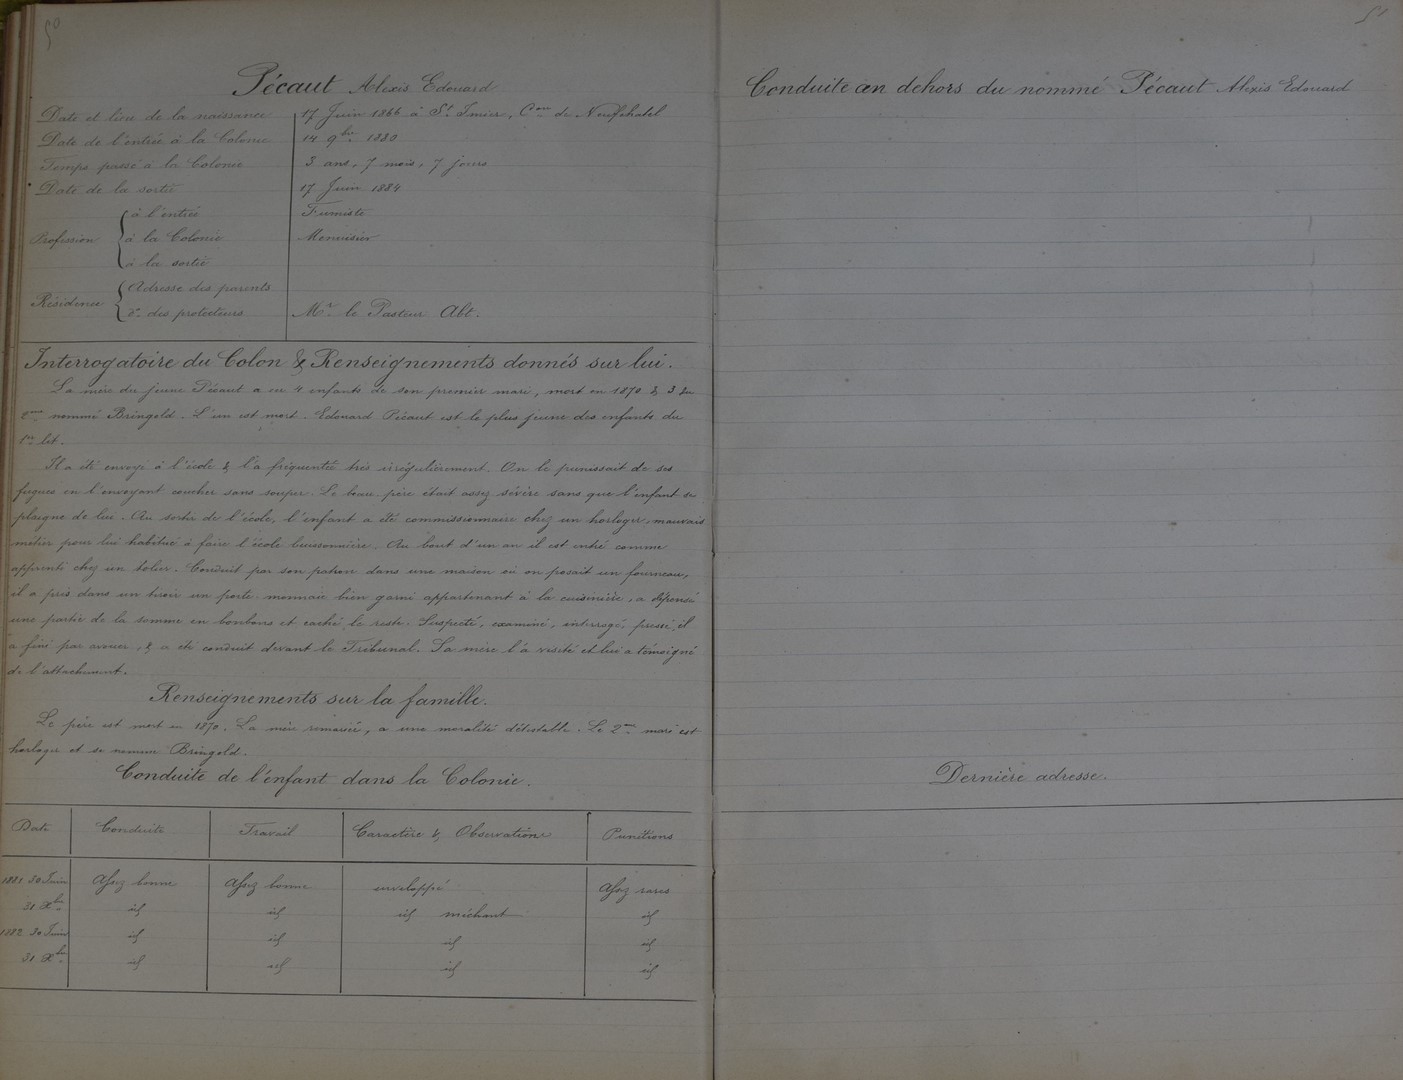 50
Pécaut Alexis Edouard
Date et lieu de la naissance 17 Juin 1866 à St Imier, Cton de Neufchatel
Date de l'entrée à la Colonie 14 9bre 1880
Temps passé à la Colonie 3 ans, 7 mois, 7 jours
Date de la sortie 17 Juin 1884
Profession { à l'entrée Fumiste
à la Colonie Menuisier
à la sortie
Résidence { Adresse des parents
do des protecteurs Mr le Pasteur Abt.
Interrogatoire du Colon & Renseignements donnés sur lui.
La mère du jeune Pécaut a eu 4 enfants de son premier mari, mort en 1870 & 3 du
2me nommé Bringold. L'un est mort. Edouard Pécaut est le plus jeune des enfants du
1er lit.
Il a été envoyé à l'école & l'a fréquentée très irrégulièrement. On le punissait de ses
fugues en l'envoyant coucher sans souper. Le beau père était assez sévère sans que l'enfant se
plaigne de lui. Au sortir de l'école, l'enfant a été commissionnaire chez un horloger, mauvais
métier pour lui habitué à faire l'école buissonnière. Au bout d'un an il est entré comme
apprenti chez un tolier. Conduit par son patron dans une maison où on posait un fourneau,
il a pris dans un tiroir un porte-monnaie bien garni appartenant à la cuisinière, a dépensé
une partie de la somme en bonbons et caché le reste. Suspecté, examiné, interrogé, pressé, il
a fini par avouer, & a été conduit devant le Tribunal. Sa mère l'a visité et lui a témoigné
de l'attachement.
Renseignements sur la famille.
Le père est mort en 1870. La mère remariée, a une moralité détestable. Le 2me mari est
horloger et se nomme Bringold.
Conduite de l'enfant dans la Colonie.
Date Conduite Travail Caractère & Observations Punitions
1881 30 Juin Assez bonne Assez bonne enveloppé Assez rares
31 Xbre id id id méchant id
1882 30 Juin id id id id
31 Xbre id id id id
51
Conduite en dehors du nommé Pécaut Alexis Edouard
Dernière adresse.